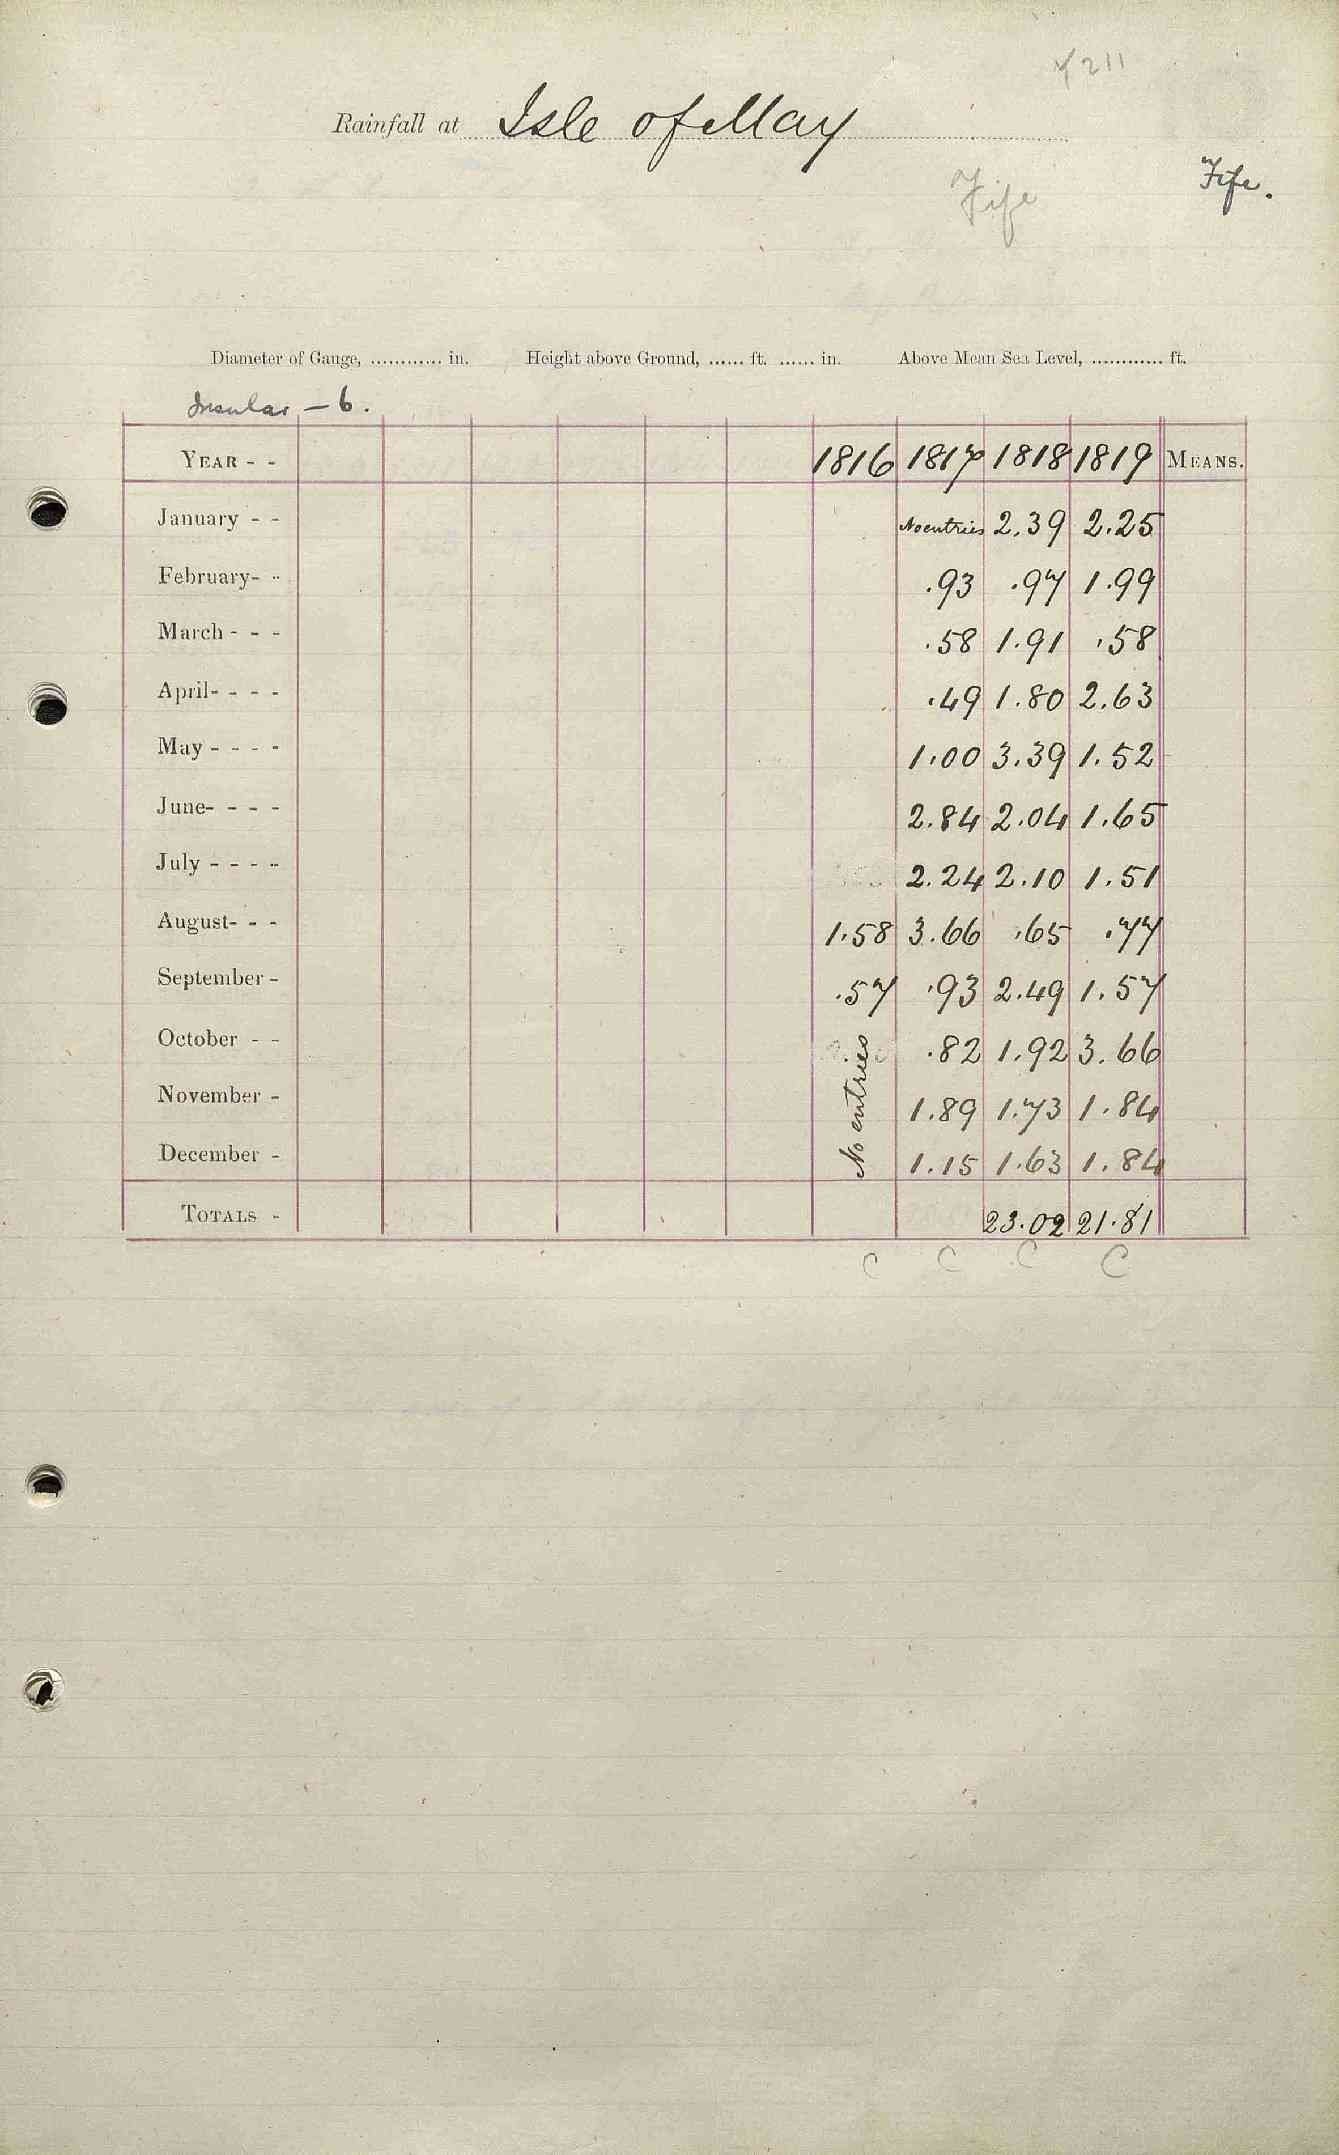 211
Rainfall at Isle of May
Fife.
Fife
Diameter of Gauge, ............ in. Height above Ground, ...... ft. ...... in. Above Mean Sea Level, ............ ft.
Insular - 6.
YEAR - - 1816 1817 1818 1819 MEANS.
January - - No entries 2.39 2.25
February- - .93 .97 1.99
March - - - .58 1.91 .58
April- - - - .49 1.80 2.63
May - - - - 1.00 3.39 1.52
June- - - - 2.84 2.04 1.65
July - - - - 2.24 2.10 1.51
August- - - 1.58 3.66 .65 .77
September - .57 .93 2.49 1.57
October - - .82 1.92 3.66
November - 1.89 1.73 1.84
December - No entries 1.15 1.63 1.84
TOTALS - 23.02 21.81
C C C C